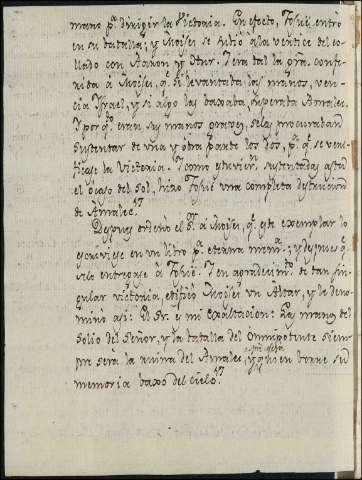 mano p.ª dirigir la Victoria. En efecto, Josué entró
en su batalla, y Moyses se subió à la vertice del co-
llado con Aaron y Hur. Y era tal la gra. confe-
rida à Moyses, q.e si levantaba las manos, ven-
cia Ysrael, y si algo las baxaba, superaba Amalec.
Y por q.e eran sus manos graves, se las procuraban
sustentar de una y otra parte los dos, p.ª q.e se ven-
ciese la Victoria. Y como estuvier.n sustentadas asta
el ocaso del Sol, hizo Josué una completa destruccion
de Amalec. 17
Despues ordenó el S.r à Moyses, q.e este exemplar lo
escriviese en un libro p.ª eterna mem.ª; y despues q.e
se lo entregase à Josué. Y en agradecim.to de tan sin-
gular victoria, edificó Moyses un Altar, y le deno-
minó asi: El S.r es mi exaltacion: Las manos del
Solio del Señor, y la batalla del Omnipotente siem-
pre será la ruina del Amalec, y quien borre su
memoria baxo del cielo. 17